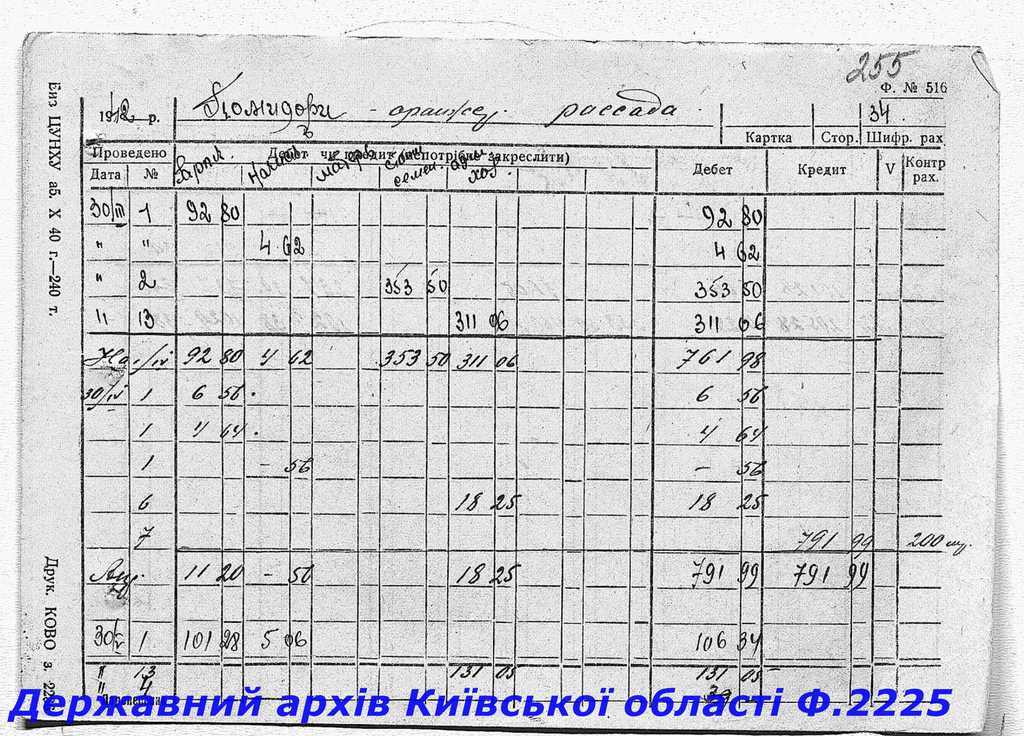 255
Ф. № 516
1942 р. Помидори - оранжер. рассада 34
Картка Стор. Шифр. рах
Проведено Дебет чи кредит (непотрібне закреслити) Дебет Кредит V Контр рах.
Дата № Зарпл. Начисл. семен. хоз.
30/III 1 92 80 92 80
" " 4 62 4 62
" 2 353 50 353 50
" 13 311 06 311 06
На 1/IV 92 80 4 62 353 50 311 06 761 98
30/IV 1 6 56 6 56
1 4 64 4 64
1 - 56 - 56
6 18 25 18 25
7 791 99 200 шт.
11 20 - 56 18 25 791 99 791 99
30/V 1 101 28 5 06 106 34
" 13 131 05 131 05
" 4
Без ЦУНХУ аб. X 40 г.—240 т.
Друк. КОВО з. 22
Державний архів Київської області Ф.2225